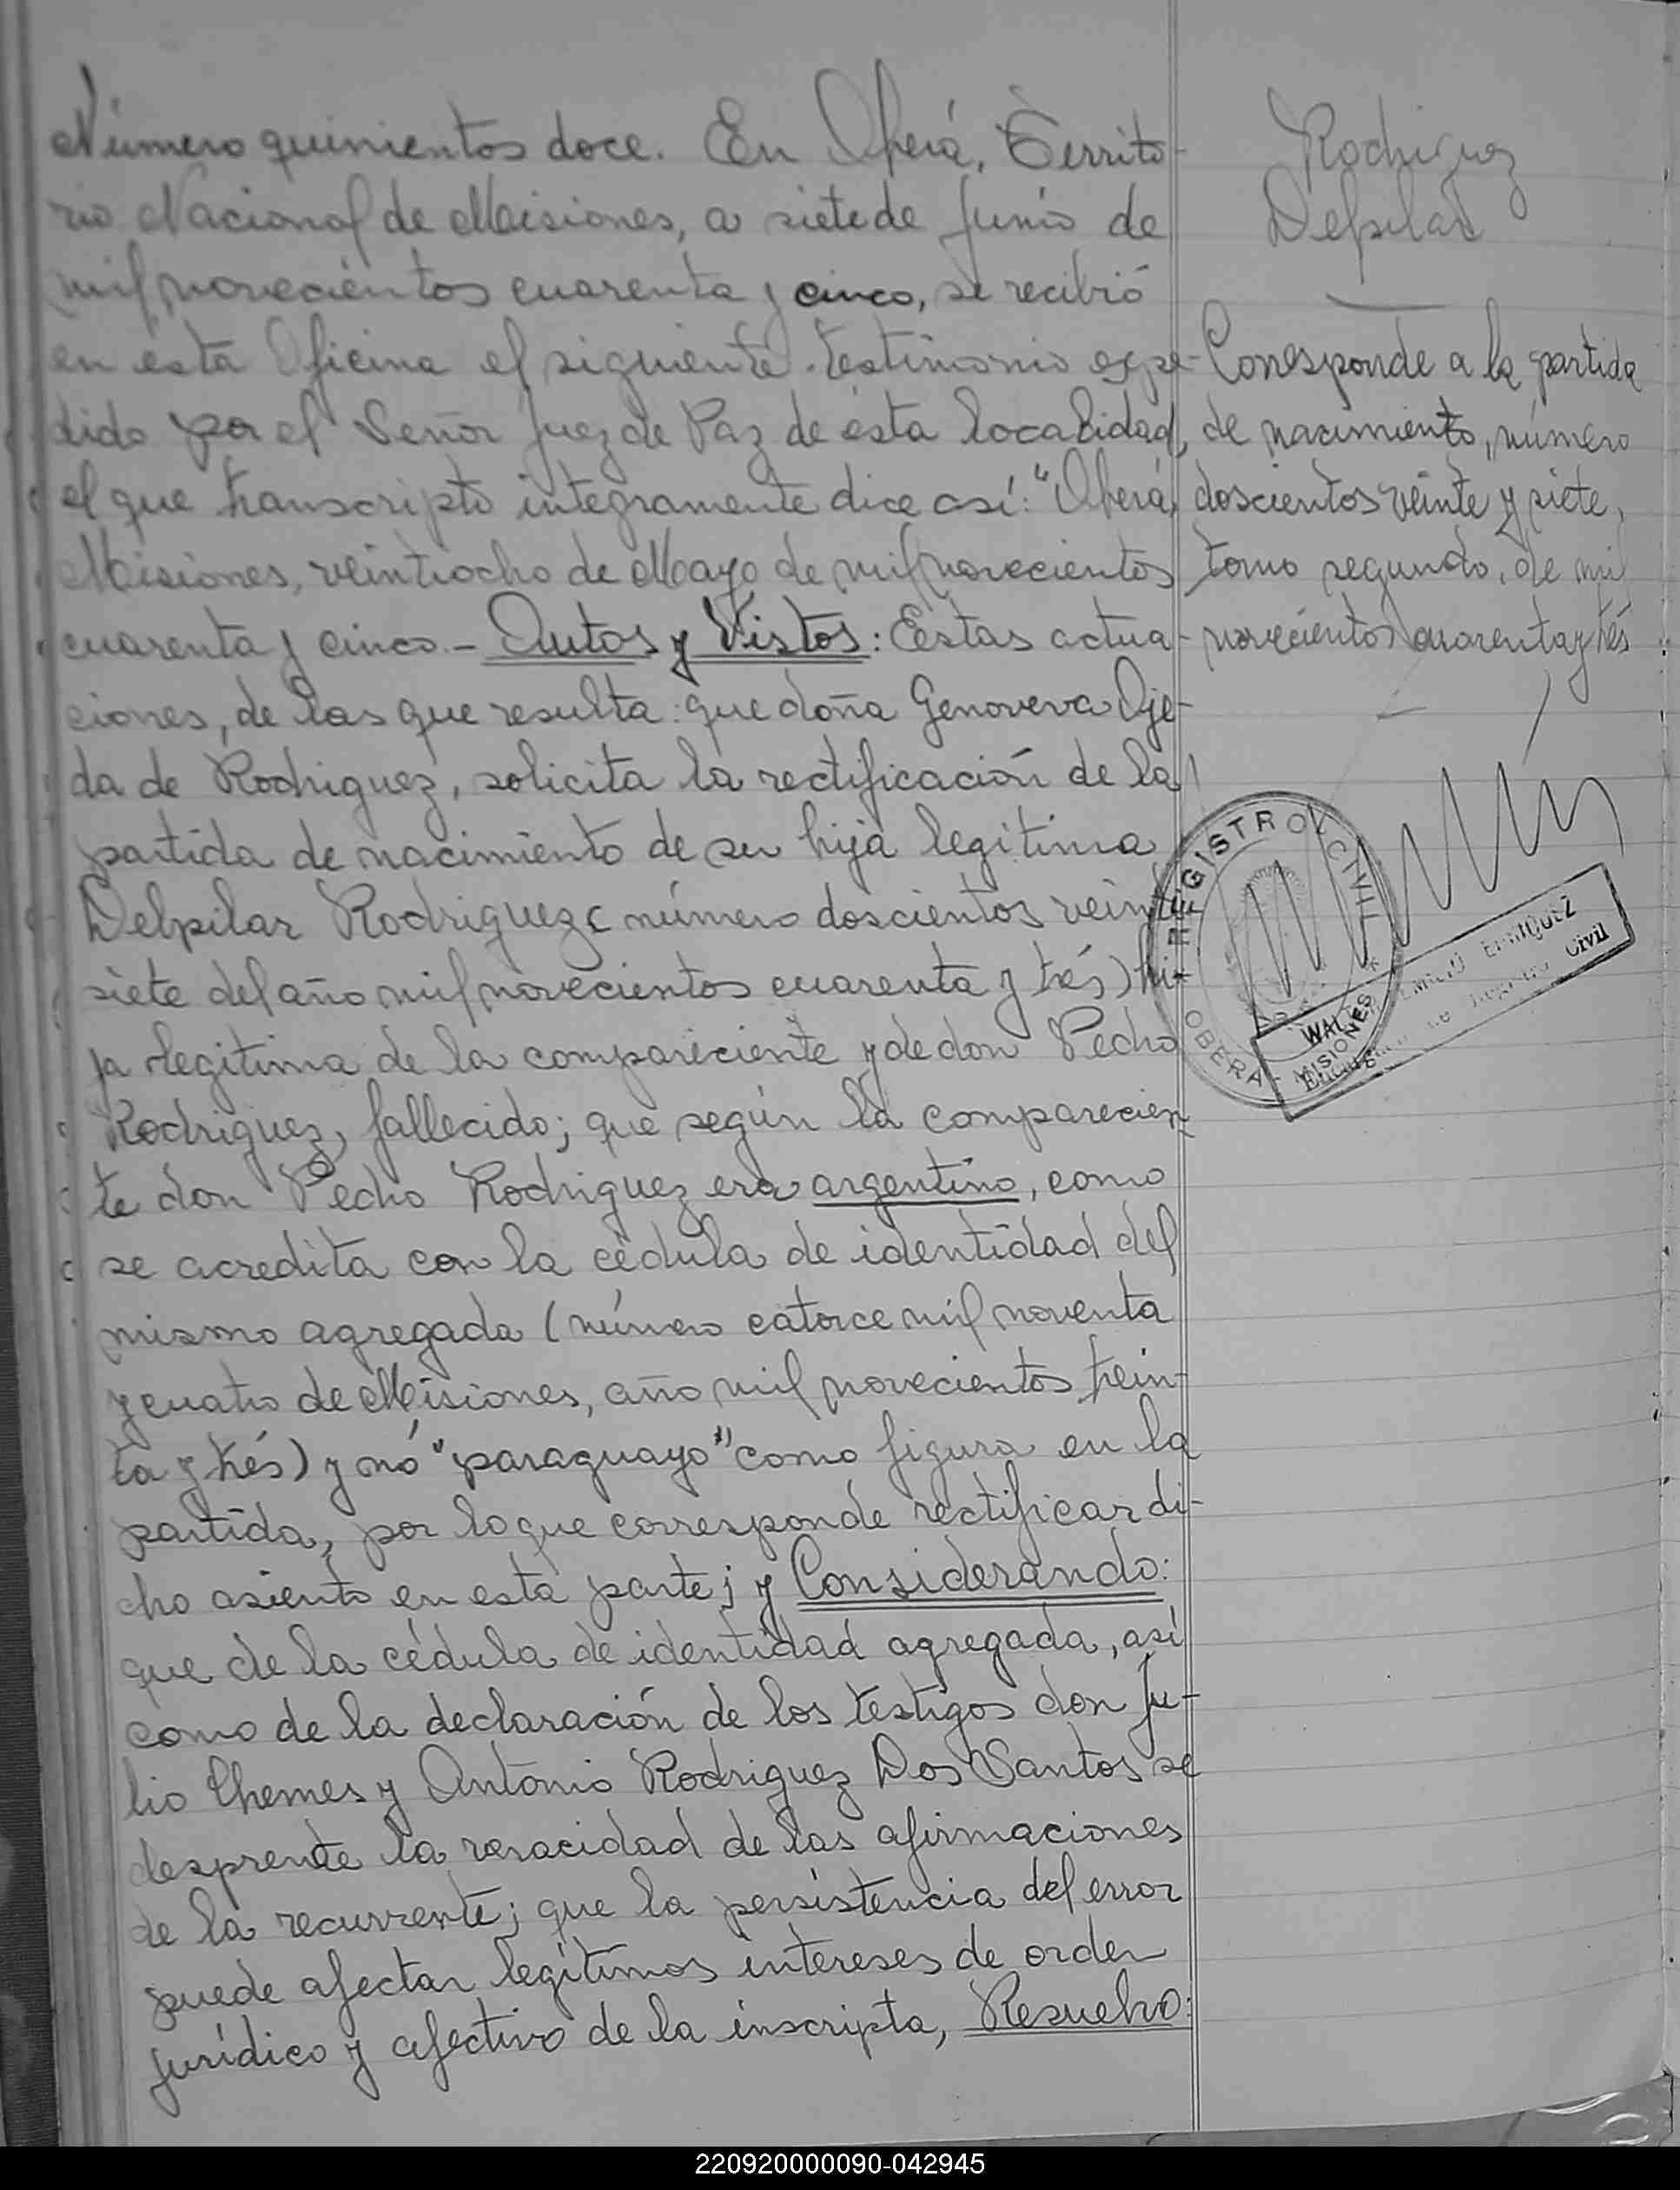 Número quinientos doce. En Oberá, Territo-
rio Nacional de Misiones, a siete de Junio de
mil novecientos cuarenta y cinco, se recibió
en ésta Oficina el siguiente testimonio expe-
dido por el Señor Juez de Paz de ésta localidad,
el que transcripto integramente dice así: "Oberá,
Misiones, veintiocho de Mayo de mil novecientos
cuarenta y cinco.- Autos y Vistos: Estas actua-
ciones, de las que resulta: que doña Genoveva Oje-
da de Rodriguez, solicita la rectificación de la
partida de nacimiento de su hija legitima
Delpilar Rodriguez (número doscientos veinte
siete del año mil novecientos cuarenta y trés) hi-
ja legitima de la compareciente y de don Pedro
Rodriguez, fallecido; que según la comparecien-
te don Pedro Rodriguez era argentino, como
se acredita con la cédula de identidad del
mismo agregada (número catorce mil noventa
y cuatro de Misiones, año mil novecientos trein-
ta y trés) y nó "paraguayo" como figura en la
partida, por lo que corresponde rectificar di-
cho asiento en esta parte; y Considerando:
que de la cédula de identidad agregada, así
como de la declaración de los testigos don Ju-
lio Chemes y Antonio Rodriguez Dos Santos se
desprende la veracidad de las afirmaciones
de la recurrente; que la persistencia del error
puede afectar legítimos intereses de orden
jurídico y afectivo de la inscripta, Resuelvo:
Rodriguez
Delpilar
Corresponde a la partida
de nacimiento, número
doscientos veinte y siete,
tomo segundo, de mil
novecientos cuarenta y trés
REGISTRO CIVIL
OBERA - MISIONES
ENRIQUEZ
Civil
220920000090-042945